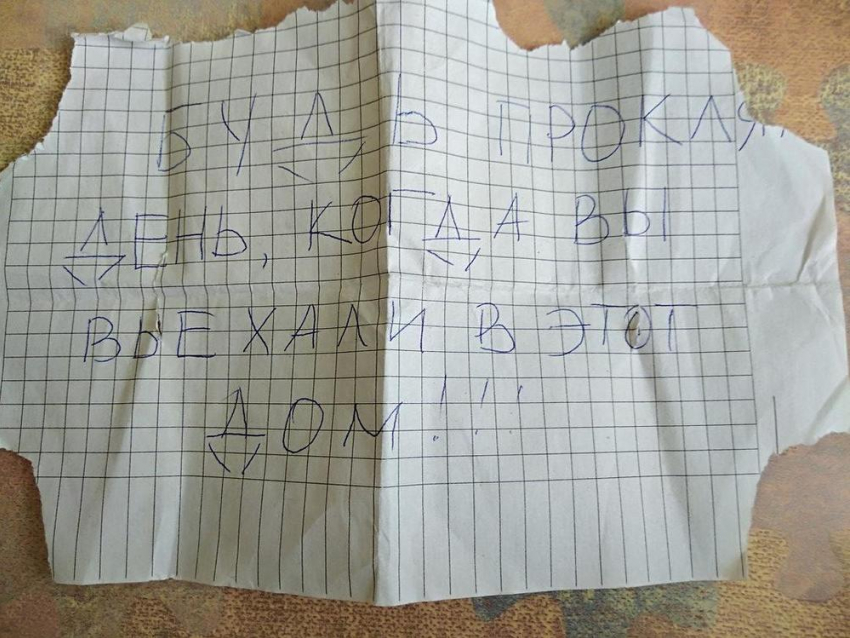 БУДЬ ПРОКЛЯ
ДЕНЬ, КОГДА ВЫ
ВЫЕХАЛИ В ЭТОТ
ДОМ!!!